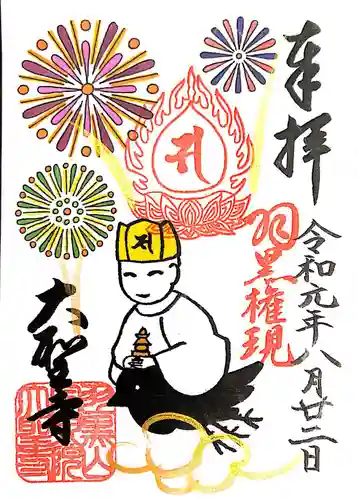 奉拝
令和元年八月廿二日
羽黒権現
大聖寺